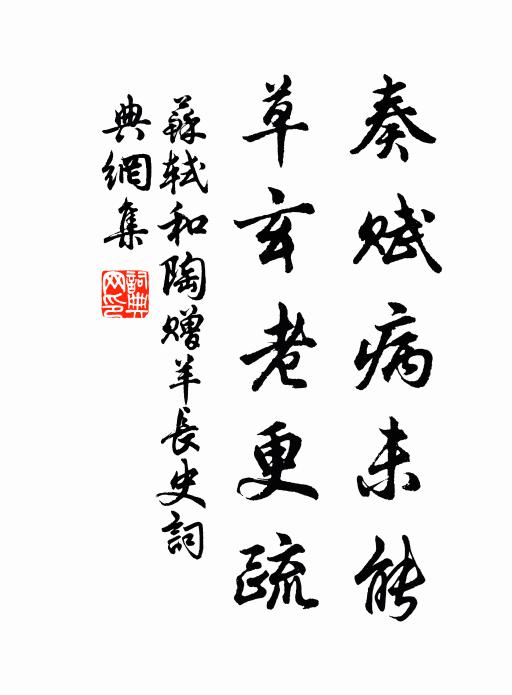 奏賦病未能
草玄老更疏
蘇軾和陶贈羊長史詞
典網集
詞典
网印